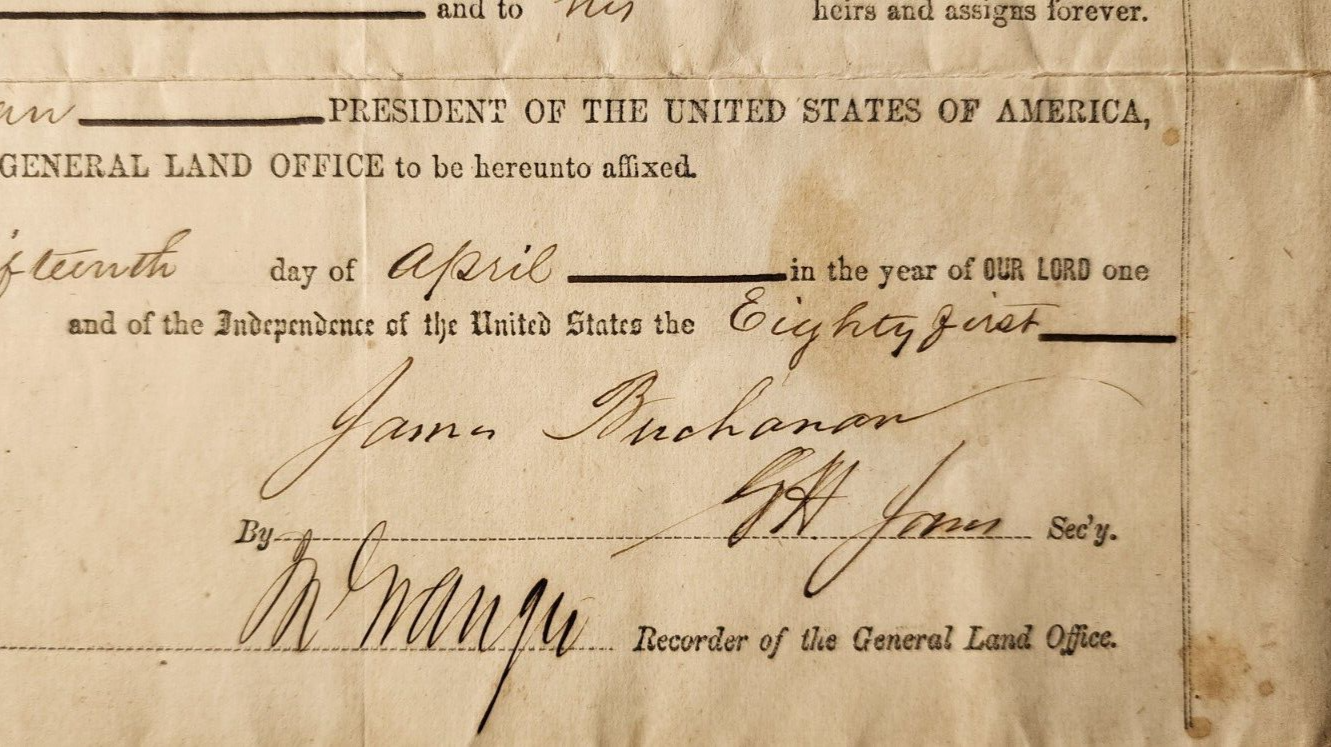 and to his heirs and assigns forever.
an PRESIDENT OF THE UNITED STATES OF AMERICA,
GENERAL LAND OFFICE to be hereunto affixed.
fteenth day of April in the year of OUR LORD one
and of the Independence of the United States the Eighty first
James Buchanan
By G H Jones Sec'y.
Recorder of the General Land Office.